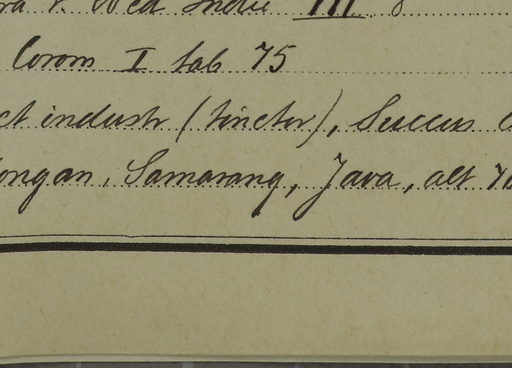 v. Ned Indië III 8
Corom I tab 75
ct industr (tinctor), Succus
ongan, Samarang, Java, alt 70